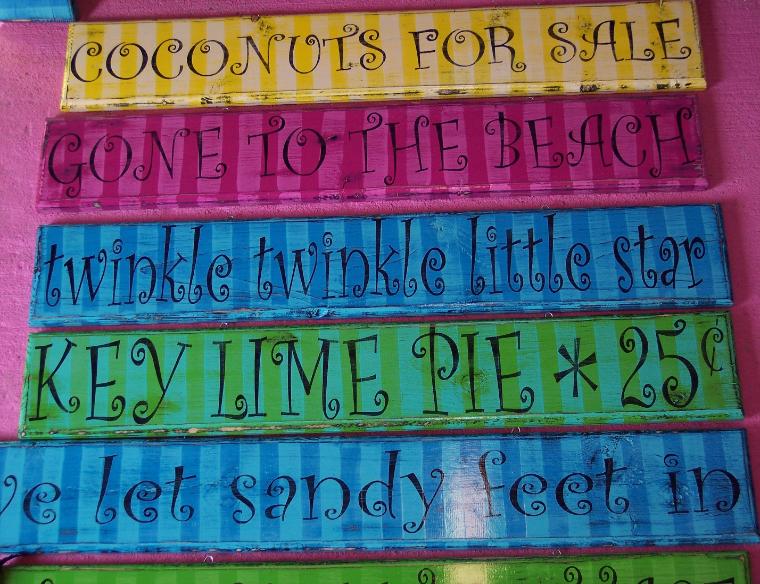 COCONUTS FOR SALE
GONE TO THE BEACH
twinkle twinkle little star
KEY LIME PIE * 25¢
ve let sandy feet in